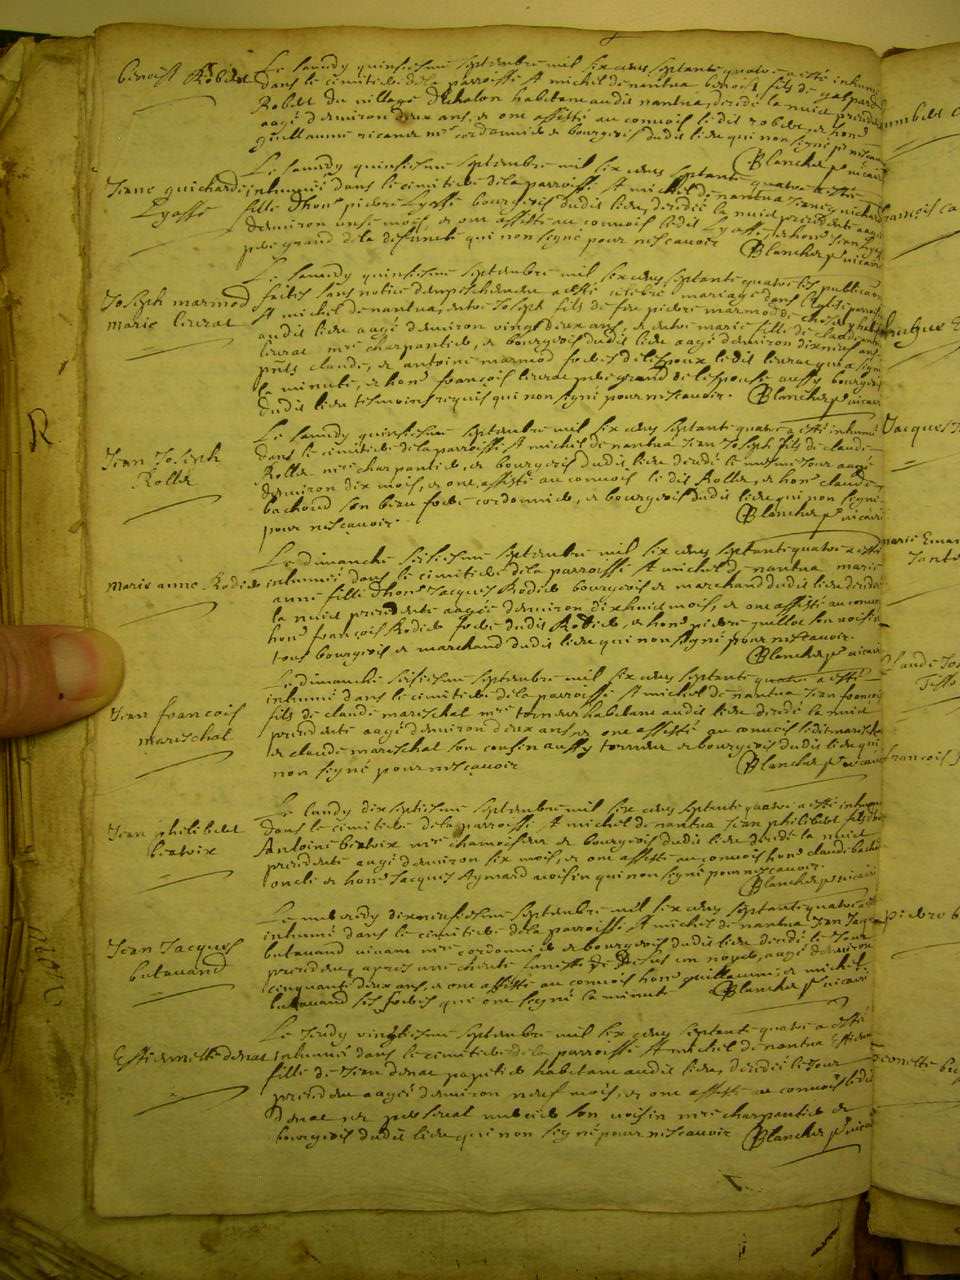 benoist Robilet
Le samedy quinsiesme septembre mil six cens septante quatre a esté inhumé
dans le cimitiere de la parroisse St michel de nantua benoist fils de gaspard
Robilet du village habitant audit nantua, decedé la nuit precedente
aagé d'environ deux ans, et ont assisté au convoi ledit robilet et honn
guillaume mre cordonnier et bourgeois dudit lieu qui n'ont signé pr ne scavoir
Blanchet p. vicaire
Jeane guichardi
Lyasse
Le samedy quinsiesme septembre mil six cens septante quatre a esté
inhumée dans le cimitiere de la parroisse St michel de nantua Jeane guichardi
fille d'hon pierre Lyasse bourgeois dudit lieu, decedée la nuit precedente aagée
d'environ onse mois, et ont assisté au convoi ledit Lyasse, et hon Jean
pere grand de la defuncte qui n'ont signé pour ne scavoir
Blanchet p. vicaire
Joseph marmod
marie lierat
Le samedy quinsiesme septembre mil six cens septante quatre les publications
faites sans notice d'empeschement a esté celebré mariage dans l'eglise parroissi
St michel de nantua, entre Joseph fils de feu pierre marmod de
audit lieu aagé d'environ vingt deux ans, et entre marie fille de claude
lierat mre charpentier, et bourgeois dudit lieu aagée d'environ dix neuf ans
pnts claude, et antoine marmod freres de l'espoux ledit lierat qui a signé
la minute, et hon françois lierat pere grand de l'espouse aussy bourgeois
dudit lieu tesmoins requis qui n'ont signé pour ne scavoir. Blanchet p. vicaire
Jean Joseph
Rollet
Le samedy quinsiesme septembre mil six cens septante quatre a esté inhumé
dans le cimitiere de la parroisse St michel de nantua Jean Joseph fils de claude
Rollet mre charpentier, et bourgeois dudit lieu decedé le mesme jour aagé
d'environ dix mois, et ont assisté au convoi ledit Rollet, et hon claude
bachod son beau frere cordonnier, et bourgeois dudit lieu qui n'ont signé
pour ne scavoir.
Blanchet p. vicaire
marie anne Rodier
Le dimanche seisiesme septembre mil six cens septante quatre a esté
inhumée dans le cimitiere de la parroisse St michel de nantua marie
anne fille d'hon Jacques Rodier bourgeois et marchand dudit lieu decedée
la nuit precedente aagée d'environ dix huit mois, et ont assisté au convoi
hon françois Rodier frere dudit Rodier, et hon pierre son voisin
tous bourgeois et marchand dudit lieu qui n'ont signé pour ne scavoir.
Blanchet p. vicaire
Jean françois
mareschal
Le dimanche seisiesme septembre mil six cens septante quatre a esté
inhumé dans le cimitiere de la parroisse St michel de nantua Jean françois
fils de claude mareschal mre torneur habitant audit lieu decedé la nuit
precedente aagé d'environ deux ans, et ont assisté au convoi ledit mareschal
et claude mareschal son cousin aussy torneur et bourgeois dudit lieu qui
n'ont signé pour ne scavoir
Blanchet p. vicaire
Jean philibert
beatrix
Le lundy dix septiesme septembre mil six cens septante quatre a esté inhumé
dans le cimitiere de la parroisse St michel de nantua Jean philibert fils d'hon
Antoine beatrix mre chamoiseur et bourgeois dudit lieu decedé la nuit
precedente aagé d'environ six mois, et ont assisté au convoi hon claude bachod
oncle et hon Jacques Aymard voisin qui n'ont signé pour ne scavoir.
Blanchet p. vicaire
Jean Jacques
butavand
Le mercredy dix neufiesme septembre mil six cens septante quatre a esté
inhumé dans le cimitiere de la parroisse St michel de nantua Jean Jacques
butavand vivant mre cordonnier et bourgeois dudit lieu decedé le jour
precedent, apres une cheute funeste de dessus un noyer, aagé d'environ
cinquante deux ans, et ont assisté au convoi hons guillaume et michel
butavand ses freres qui ont signé la minute Blanchet p. vicaire
Estiennette denat
Le Jeudy vingtiesme septembre mil six cens septante quatre a esté
inhumée dans le cimitiere de la parroisse St michel de nantua Estiennette
fille de Jean denat papetier habitant audit lieu, decedée le jour
precedent aagée d'environ neuf mois, et ont assisté au convoi ledit
denat et son voisin mre charpentier et
bourgeois dudit lieu qui n'ont signé pour ne scavoir Blanchet p. vicaire
R
françois
Jacques
claude Jos
françois
pierre